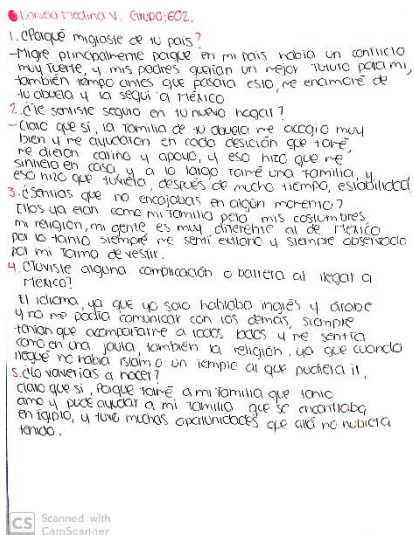 Daniela Medina V. Grupo: 602.
1. ¿Porqué migraste de tu pais?
-Migré principalmente porque en mi pais habia un conflicto
muy fuerte, y mis padres querian un mejor futuro para mi,
también tampo antes que pasara esto, me enamoré de
tu abuela y la segui a México
2. ¿Te sentiste seguro en tu nuevo hogar?
-Claro que sí, la familia de tu abuela me acogio muy
bien y me ayudaron en cada desición que tomé,
me dieron cariño y apoyo, y eso hizo que me
sintiera en casa, y a lo largo formé una familia, y
eso hizo que tuviera, después de mucho tiempo, estabilidad
3. ¿Sentias que no encajabas en algún momento?
Ellos ya eran como mi familia pero, mis costumbres,
mi religión, mi gente es muy diferente al de México
por lo tanto siempre me sentí extraño y siempre observado
por mi forma de vestir.
4. ¿Tuviste alguna complicación o barrera al llegar a
México?
El idioma, ya que yo solo hablaba inglés y árabe
y no me podia comunicar con los demás, siempre
tenian que acompañarme a todos lados y me sentía
como en una jaula también la religión, ya que cuando
llegué no habia islamo o un templo al que pudiera ir.
5. ¿Lo volverías a hacer?
Claro que sí, Porque formé a mi familia que tanto
amo y pude ayudar a mi familia que se encontraba
en Egipto, y tuve muchas oportunidades que allá no hubiera
tenido.
CS Scanned with
CamScanner